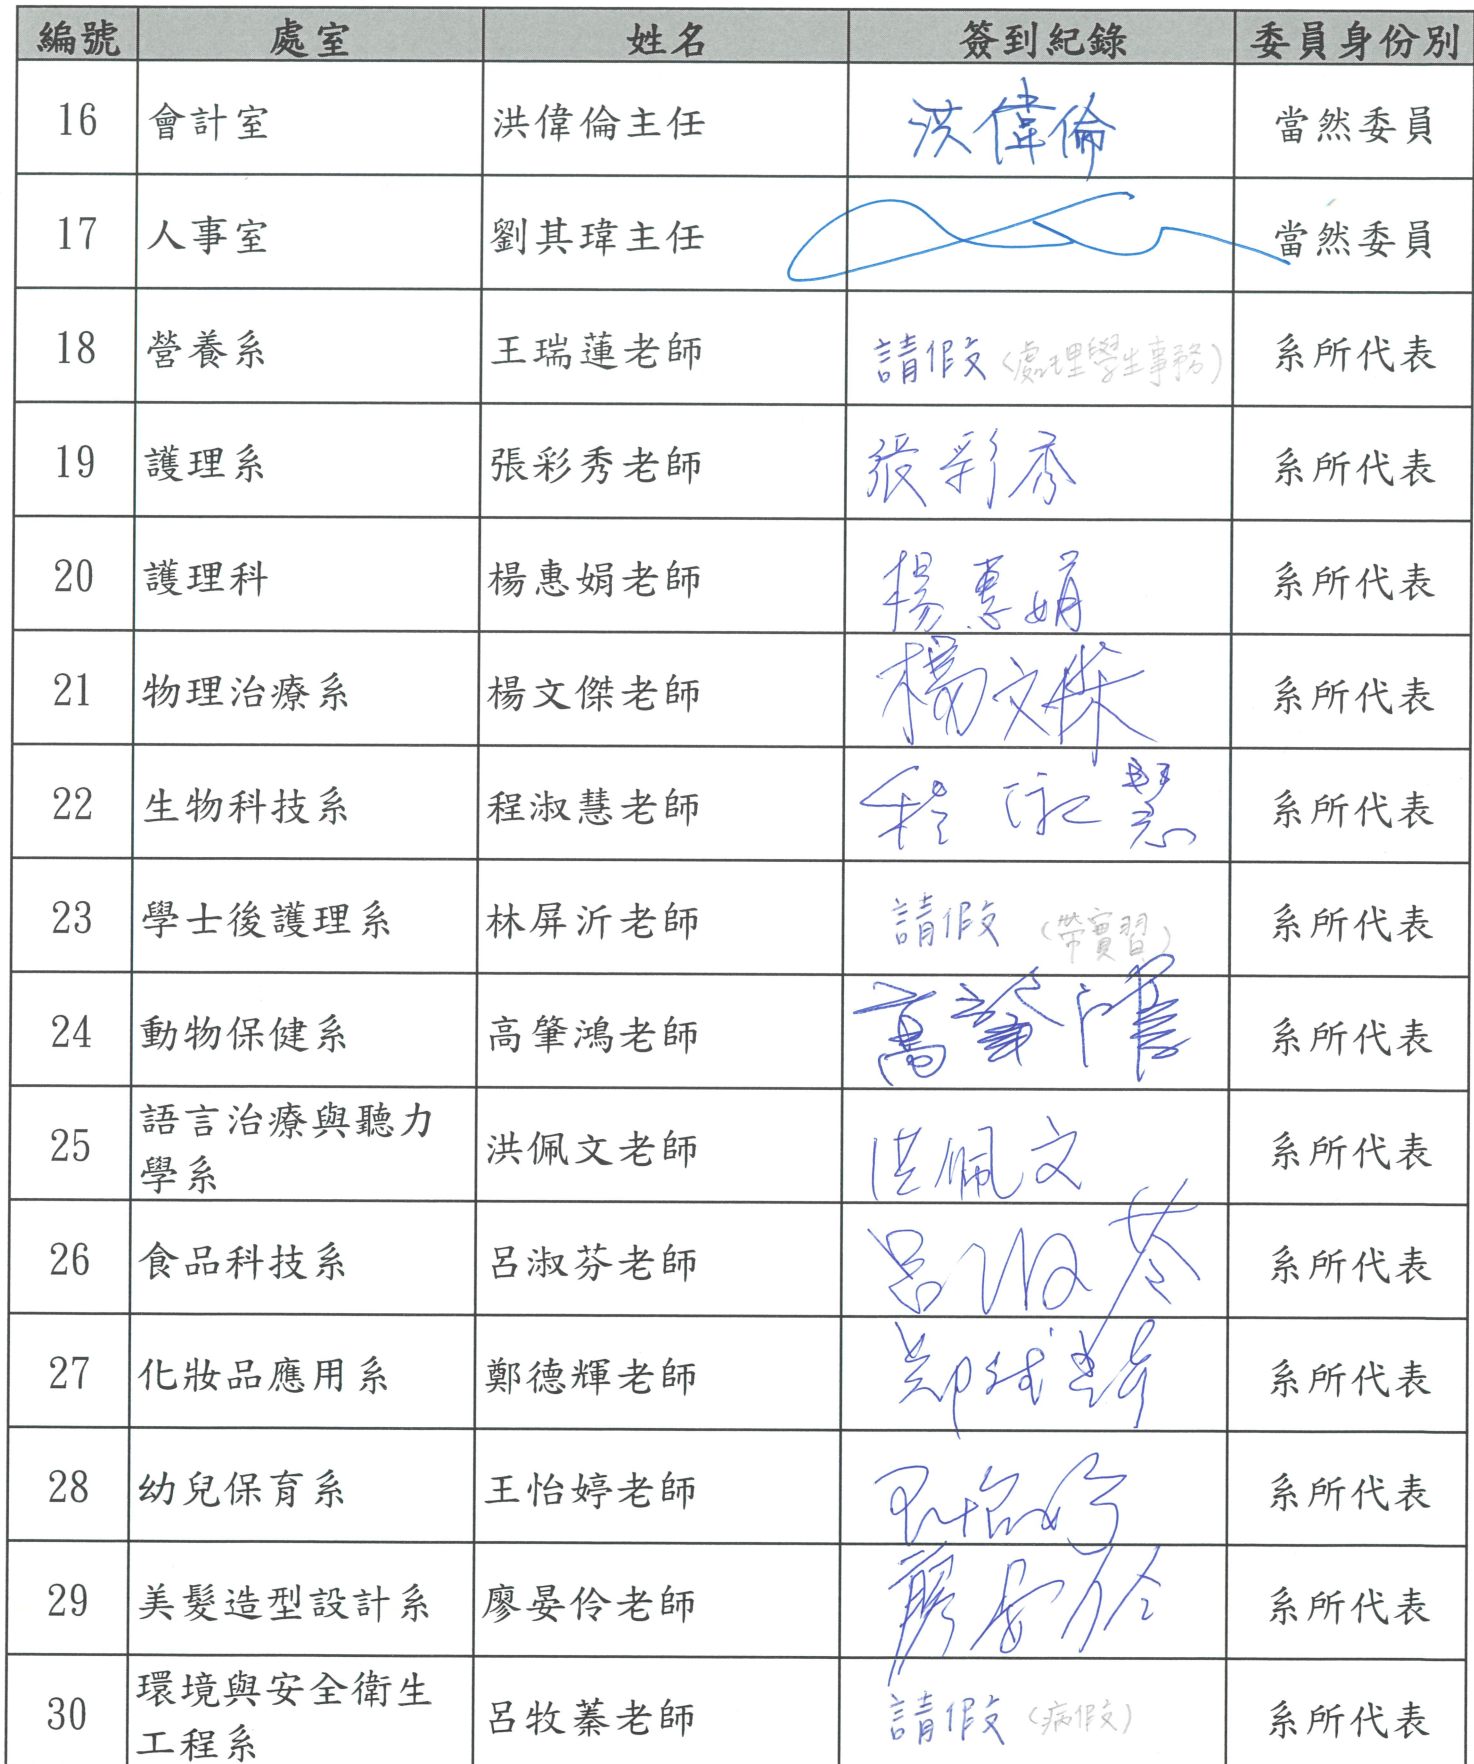 編號 處室 姓名 簽到紀錄 委員身份別
16 會計室 洪偉倫主任 洪偉倫 當然委員
17 人事室 劉其瑋主任 當然委員
18 營養系 王瑞蓮老師 請假(處理學生事務) 系所代表
19 護理系 張彩秀老師 張彩秀 系所代表
20 護理科 楊惠娟老師 楊惠娟 系所代表
21 物理治療系 楊文傑老師 楊文傑 系所代表
22 生物科技系 程淑慧老師 程淑慧 系所代表
23 學士後護理系 林屏沂老師 請假 (帶實習) 系所代表
24 動物保健系 高肇鴻老師 高肇鴻 系所代表
25 語言治療與聽力
學系 洪佩文老師 洪佩文 系所代表
26 食品科技系 呂淑芬老師 呂淑芬 系所代表
27 化妝品應用系 鄭德輝老師 鄭德輝 系所代表
28 幼兒保育系 王怡婷老師 王怡婷 系所代表
29 美髮造型設計系 廖晏伶老師 廖晏伶 系所代表
30 環境與安全衛生
工程系 呂牧蓁老師 請假(病假) 系所代表